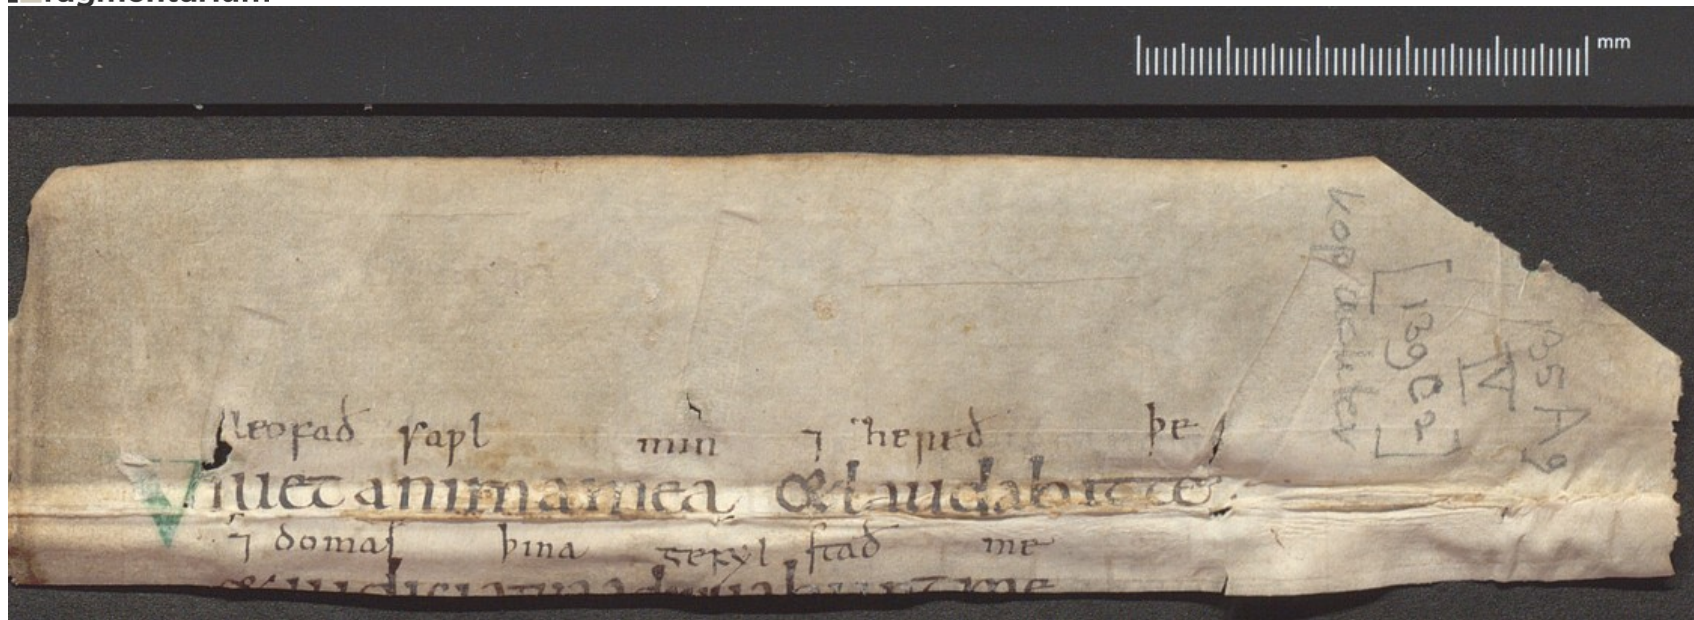 Fragmentarium
mm
leofað saƿl min ⁊ hereð þe
Viuet anima mea & laudabit te:
⁊ domas þina gefylstað me
& iudicia tua adiuuabunt me
[139 C2]
IV
135 A 9